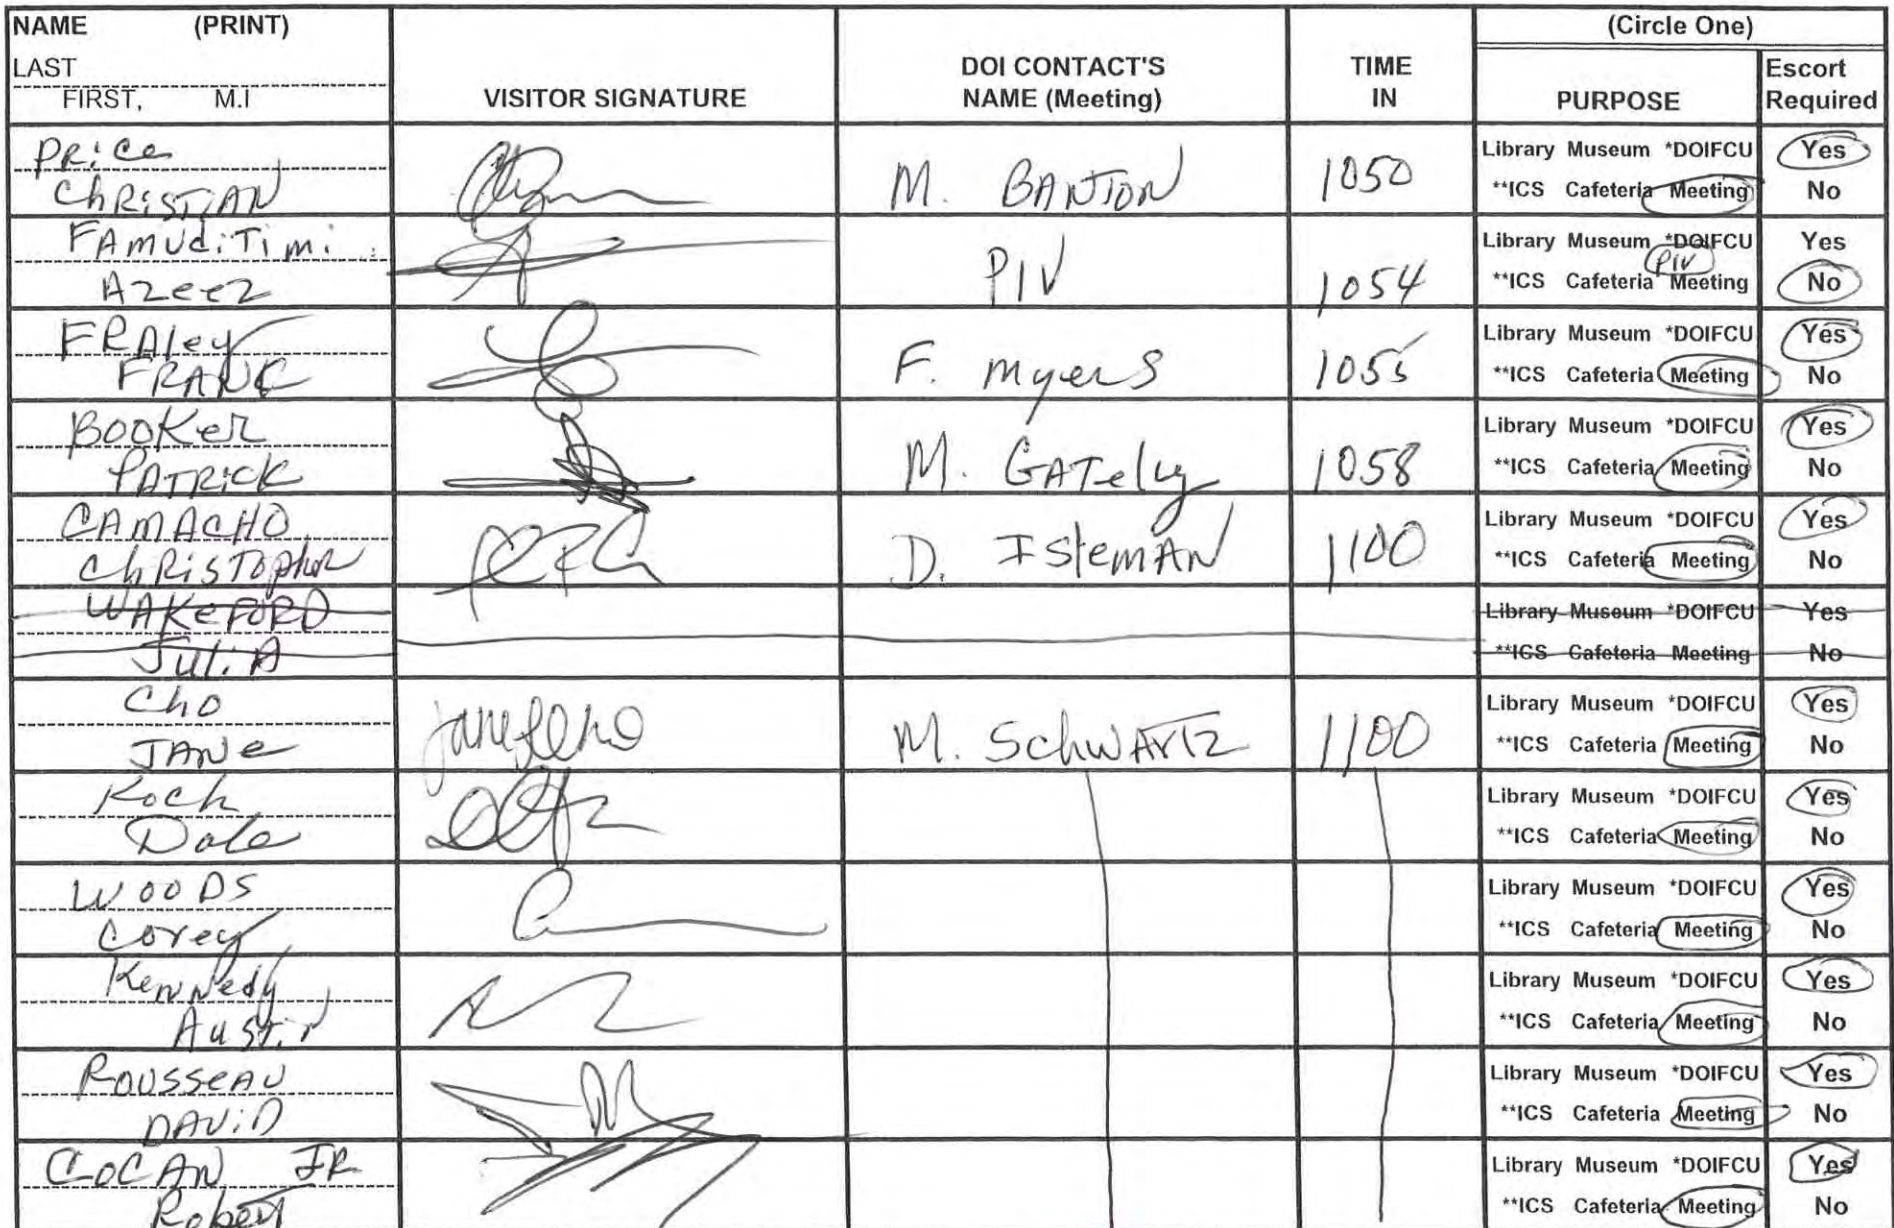 NAME (PRINT)
LAST
FIRST, M.I
VISITOR SIGNATURE
DOI CONTACT'S
NAME (Meeting)
TIME
IN
(Circle One)
PURPOSE
Escort
Required
PRice
ChRiSTIAN
M. BANTON
1050
Library Museum *DOIFCU Yes
**ICS Cafeteria Meeting No
FAMUdiTimi
Azeez
PIV
1054
Library Museum *DOIFCU Yes
PIV
**ICS Cafeteria Meeting No
FRAley
FRANK
F. Myers
1055
Library Museum *DOIFCU Yes
**ICS Cafeteria Meeting No
BOOKeR
PATRicK
M. GATely
1058
Library Museum *DOIFCU Yes
**ICS Cafeteria Meeting No
CAMACHO
ChRiSTopheR
D. ISTeMAN
1100
Library Museum *DOIFCU Yes
**ICS Cafeteria Meeting No
WAKeFORD
JuliA
Library Museum *DOIFCU Yes
**ICS Cafeteria Meeting No
Cho
JANe
M. SchWARTZ
1100
Library Museum *DOIFCU Yes
**ICS Cafeteria Meeting No
Koch
Dale
Library Museum *DOIFCU Yes
**ICS Cafeteria Meeting No
WOODS
Corey
Library Museum *DOIFCU Yes
**ICS Cafeteria Meeting No
KenNedy
AuSTiN
Library Museum *DOIFCU Yes
**ICS Cafeteria Meeting No
ROUSSeAU
DAViD
Library Museum *DOIFCU Yes
**ICS Cafeteria Meeting No
COCAN JR
RobeRT
Library Museum *DOIFCU Yes
**ICS Cafeteria Meeting No